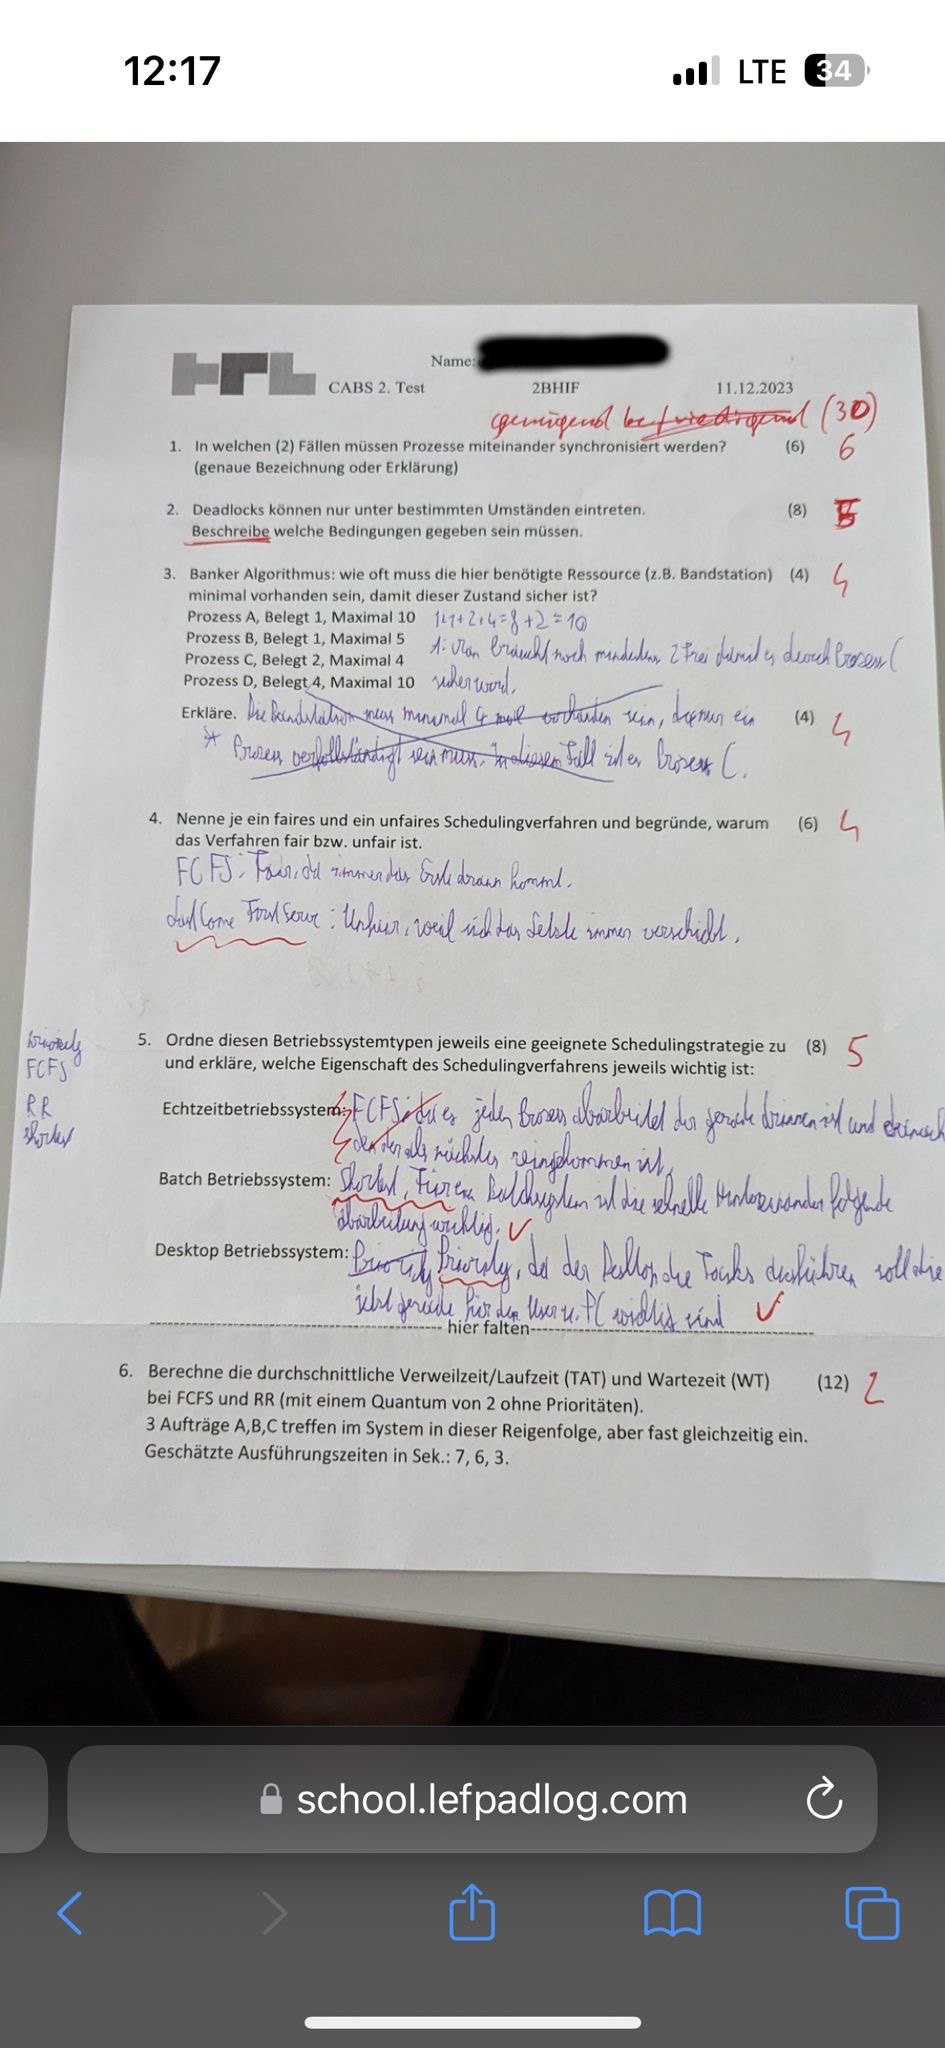 12:17
LTE 34
HTL
Name:
CABS 2. Test 2BHIF 11.12.2023
genügend befriedigend (30)
1. In welchen (2) Fällen müssen Prozesse miteinander synchronisiert werden? (6) 6
(genaue Bezeichnung oder Erklärung)
2. Deadlocks können nur unter bestimmten Umständen eintreten. (8) 5
Beschreibe welche Bedingungen gegeben sein müssen.
3. Banker Algorithmus: wie oft muss die hier benötigte Ressource (z.B. Bandstation) (4) 4
minimal vorhanden sein, damit dieser Zustand sicher ist?
Prozess A, Belegt 1, Maximal 10 1+1+2+4=8+2=10
Prozess B, Belegt 1, Maximal 5
A: Man braucht noch mindestens 2 Frei damit es durch Prozess C
Prozess C, Belegt 2, Maximal 4
Prozess D, Belegt 4, Maximal 10 sicher wird.
Erkläre. Die Bandstation muss minimal 4 mal vorhanden sein, da nur ein (4) 4
* Prozess vervollständigt sein muss. In diesem Fall ist es Prozess C.
4. Nenne je ein faires und ein unfaires Schedulingverfahren und begründe, warum (6) 4
das Verfahren fair bzw. unfair ist.
FCFS: Fair, da immer der Erste drann kommt.
Last Come First Serve: Unfair, weil sich das Letzte immer verschiebt.
Priority
FCFS
RR
Shortest
5. Ordne diesen Betriebssystemtypen jeweils eine geeignete Schedulingstrategie zu (8) 5
und erkläre, welche Eigenschaft des Schedulingverfahrens jeweils wichtig ist:
Echtzeitbetriebssystem: FCFS: da es jeden Prozess abarbeitet der gerade drinnen ist und
den der als nächstes reingekommen ist.
Batch Betriebssystem: Shortest, Für ein Batchsystem ist die schnelle Hintereinander folgende
abarbeitung wichtig. ✓
Desktop Betriebssystem: Priority Priority, da der Desktop die Tasks ausführen soll die
jetzt gerade für den User u. PC wichtig sind ✓
hier falten
6. Berechne die durchschnittliche Verweilzeit/Laufzeit (TAT) und Wartezeit (WT) (12) 2
bei FCFS und RR (mit einem Quantum von 2 ohne Prioritäten).
3 Aufträge A,B,C treffen im System in dieser Reigenfolge, aber fast gleichzeitig ein.
Geschätzte Ausführungszeiten in Sek.: 7, 6, 3.
school.lefpadlog.com